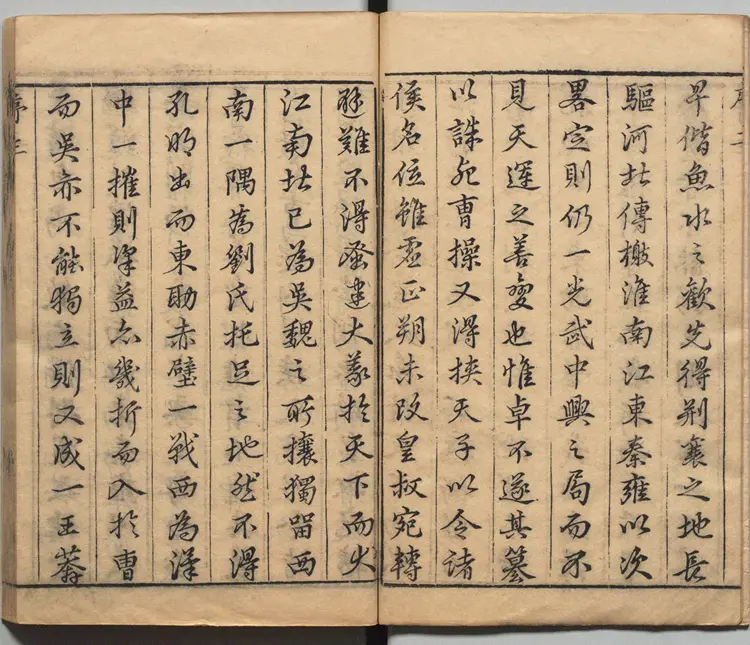 序二
早偕魚水之歡先得荊襄之地長
驅河北傳檄淮南江東秦雍以次
畧定則仍一光武中興之局而不
見天運之善變也惟卓不遂其篡
以誅死曹操又得挾天子以令諸
侯名位雖虛正朔未改皇叔宛轉
避難不得蚤建大義於天下而大
江南北已為吳魏之所攘獨留西
南一隅為劉氏托足之地然不得
孔明出而東助赤壁一戰西為漢
中一摧則梁益亦幾折而入於曹
而吳亦不能獨立則又成一王莽
序三